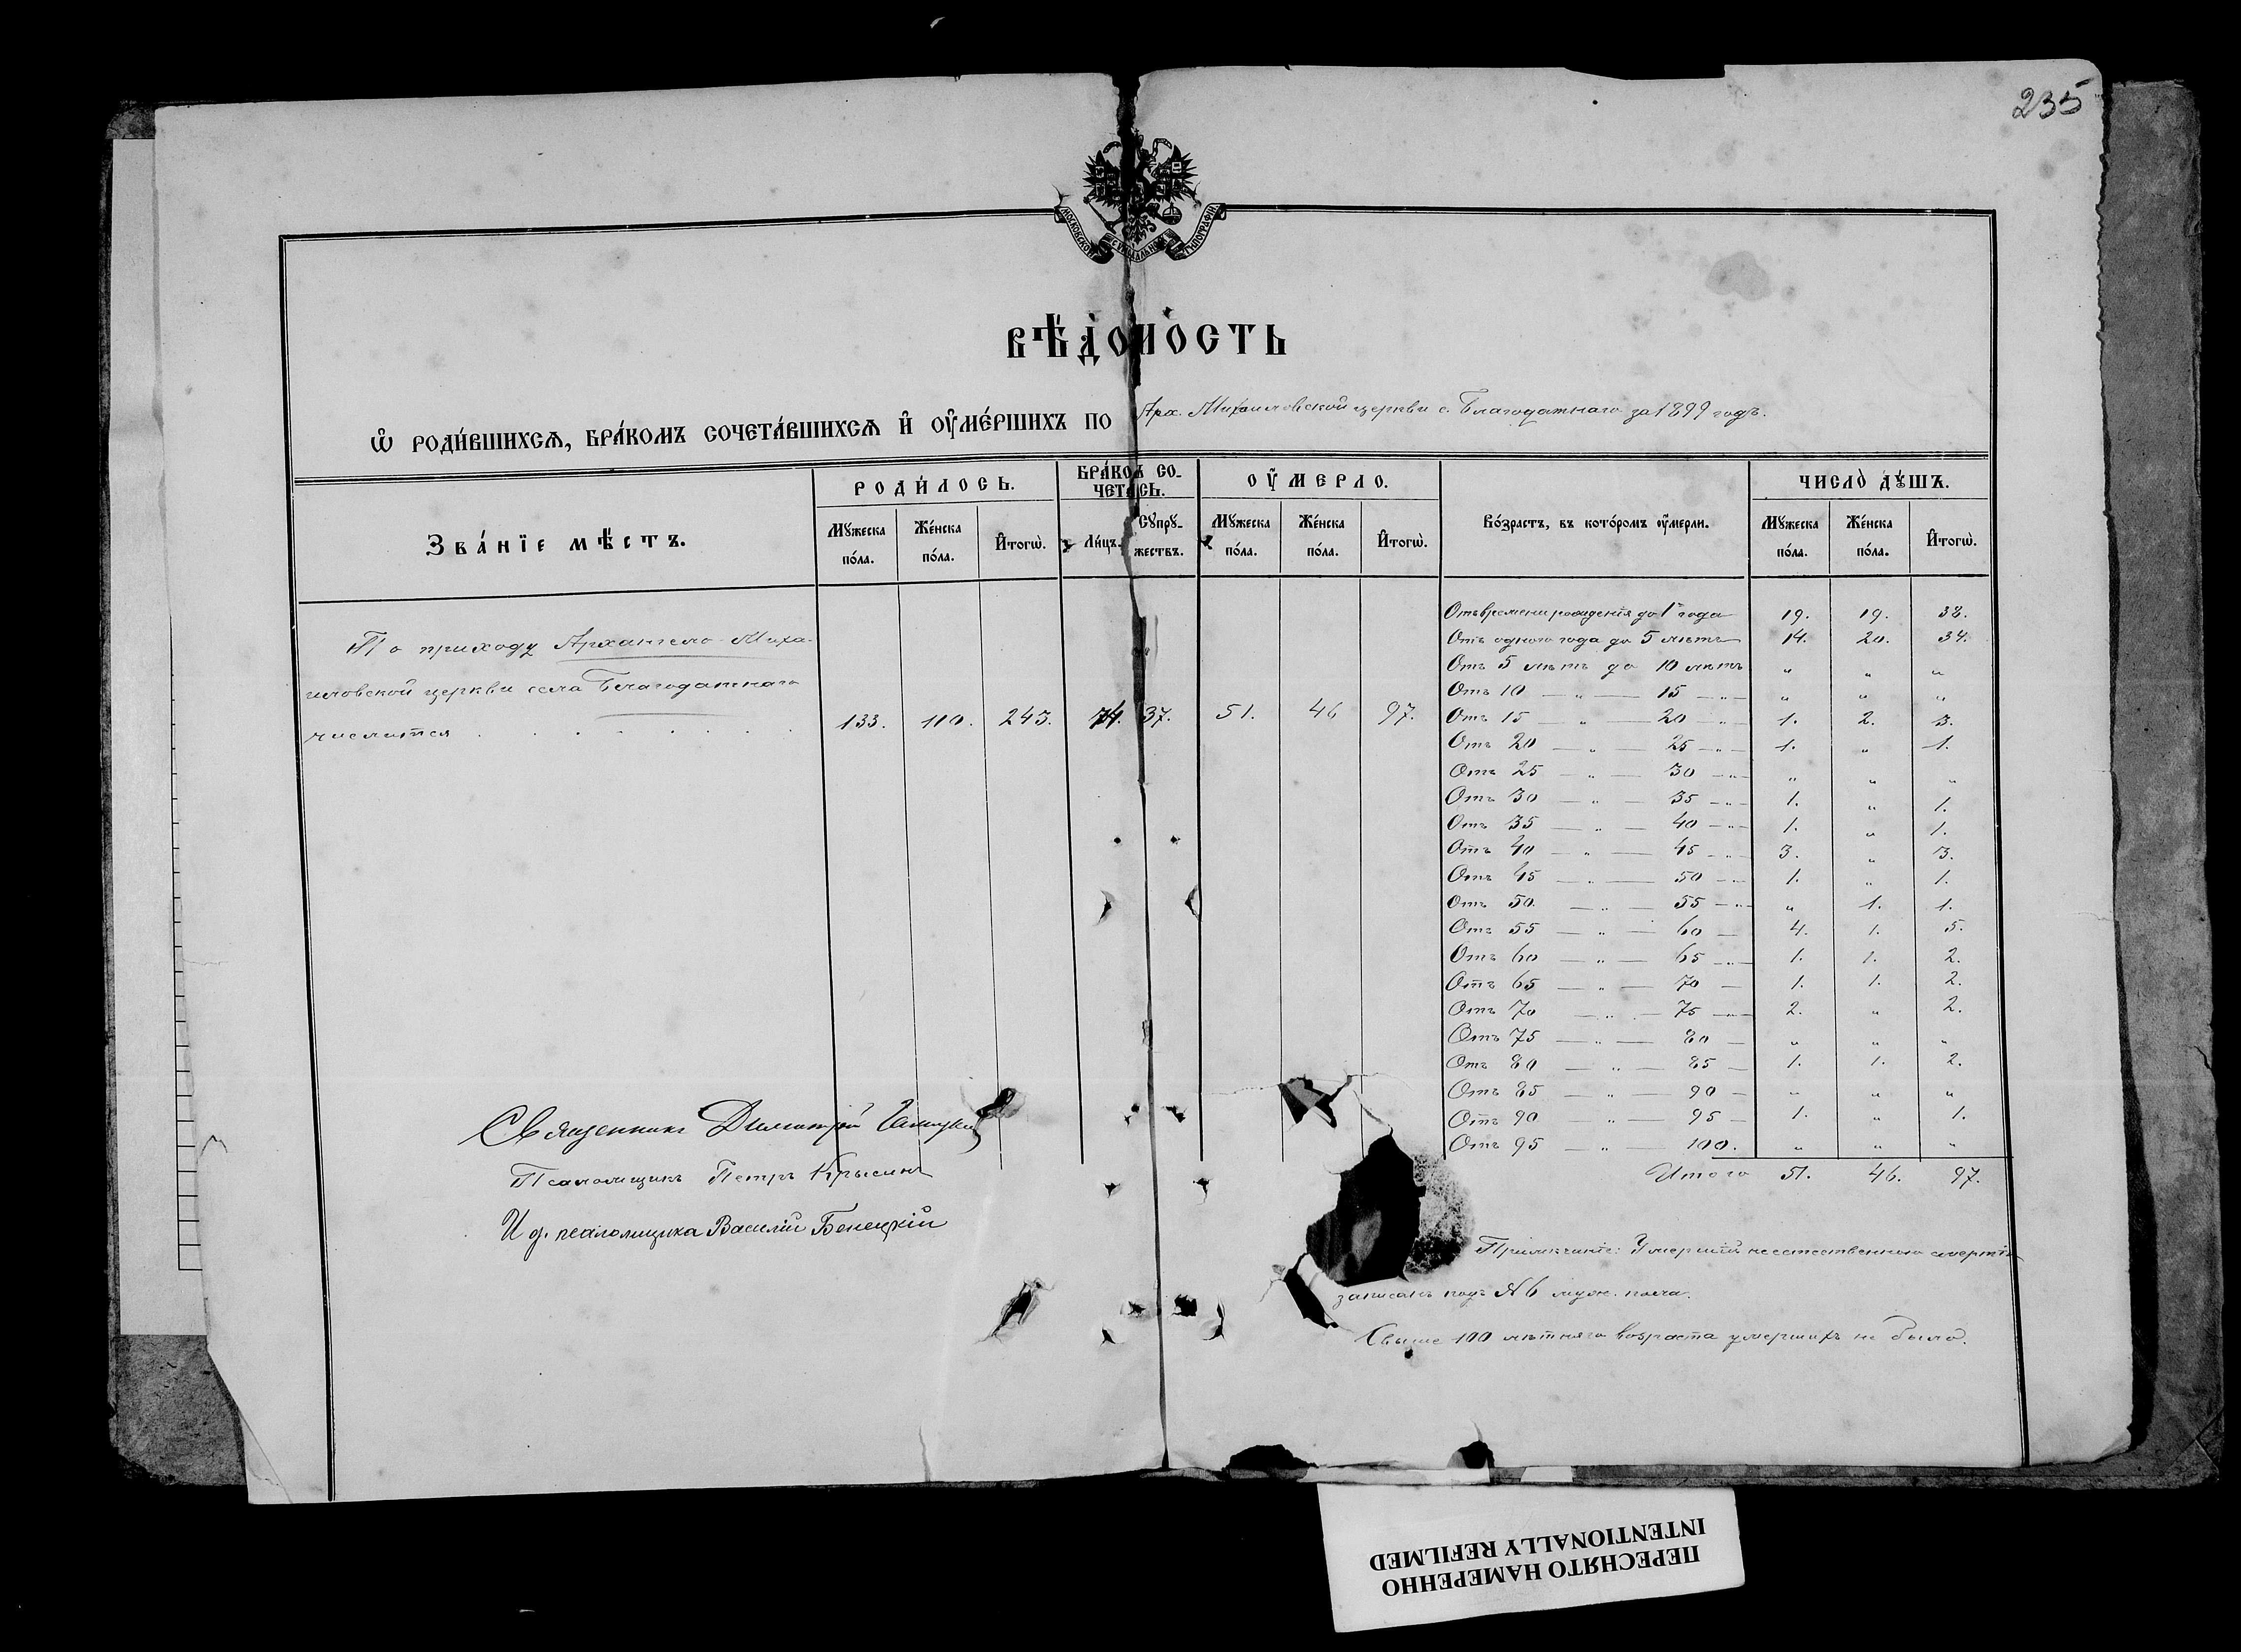 235
МОСКОВСКОЙ СѴНОДАЛЬНОЙ ТИПОГРАФІИ
ВѢДОМОСТЬ
Ѡ РОДИ́ВШИХСѦ, БРА́КОМЪ СОЧЕТА́ВШИХСѦ И҆ ОУ҆МЕ́РШИХЪ ПО Арх. Михаиловской церкви с. Благодатнаго за 1899 годъ.
Зва́нїе мѣстъ. РОДИ́ЛОСЬ. БРА́КОМЪ СОЧЕТАСЬ. ОУ҆МЕРЛО. Во́зрастъ, въ кото́ромъ оу҆мерли. ЧИСЛО̀ ДꙊ́ШЪ.
Мꙋ́жеска по́ла. Же́нска по́ла. И҆того̀. Ли́цъ. Сꙋпрꙋ́жествъ. Мꙋ́жеска по́ла. Же́нска по́ла. И҆того̀. Мꙋ́жеска по́ла. Же́нска по́ла. И҆того̀.
По приходу Архангело-Михаиловской церкви села Благодатнаго числится . . . . . . . 133. 110. 243. 74. 37. 51. 46 97.
Отъ времени рожденія до 1го года 19. 19. 38.
Отъ одного года до 5 лѣтъ 14. 20. 34.
Отъ 5 лѣтъ до 10 лѣтъ " " "
Отъ 10 — " — 15 — " — " " "
Отъ 15 — " — 20 — " — 1. 2. 3.
Отъ 20 — " — 25 — " — 1. " 1.
Отъ 25 — " — 30 — " — " " "
Отъ 30 — " — 35 — " — 1. " 1.
Отъ 35 — " — 40 — " — 1. " 1.
Отъ 40 — " — 45 — " — 3. " 3.
Отъ 45 — " — 50 — " — 1. " 1.
Отъ 50 — " — 55 — " — " 1. 1.
Отъ 55 — " — 60 — 4. 1. 5.
Отъ 60 — " — 65 — " — 1. 1. 2.
Отъ 65 — " — 70 — 1. 1. 2.
Отъ 70 — " — 75 — " — 2. " 2.
Отъ 75 — " — 80 — " " "
Отъ 80 — " — 85 — 1. 1. 2.
Отъ 85 — " — 90 — " " "
Отъ 90 — " — 95 — 1. " 1.
Отъ 95 — " — 100. " " "
Итого 51. 46. 97.
Священникъ Димитрій
Псаломщикъ Петръ Крысинъ
И д. псаломщика Василій Бенецкій
Примѣчаніе: Умершій неестественною смертію
записанъ подъ № 6 муж. пола.
Свыше 100 лѣтняго возраста умершихъ не было.
ПЕРЕСНЯТО НАМЕРЕННО
INTENTIONALLY REFILMED